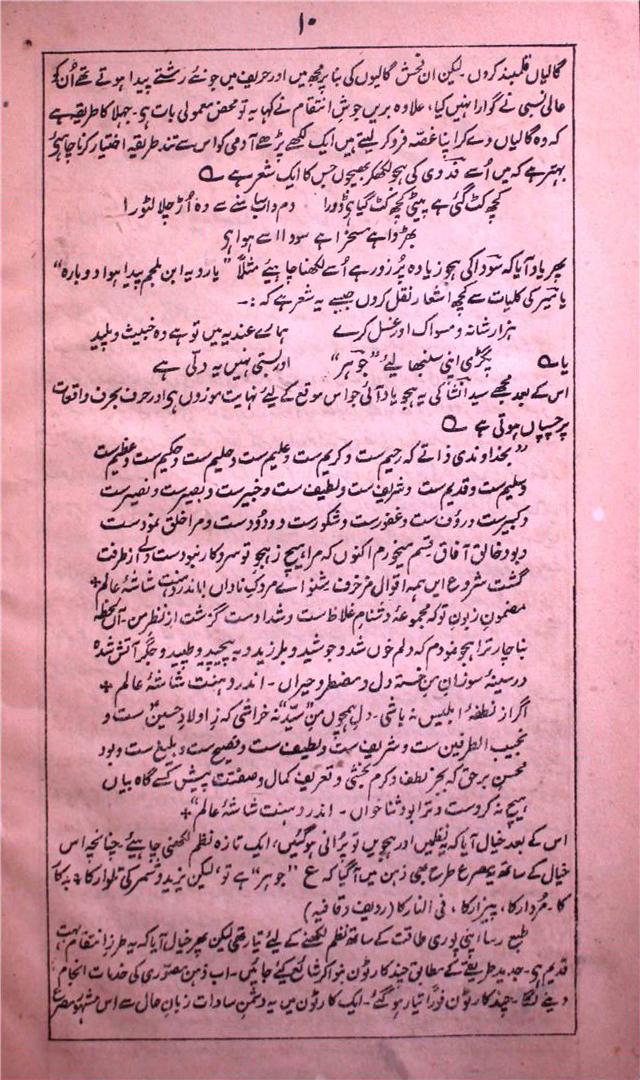 ۱۰
گالیاں قلمبند کروں۔ لیکن ان فحش گالیوں کی بنا پر مجھ میں اور حریف میں جو نئے رشتے پیدا ہوتے تھے اُن کو
عالی نسبی نے گوارا نہیں کیا، علاوہ بریں جوش انتقام نے کہا یہ تو محض معمولی بات ہی۔ جہلا کا طریقہ ہے
کہ وہ گالیاں دے کر اپنا غصہ فرو کر لیتے ہیں ایک لکھے پڑھے آدمی کو اس سے تند طریقہ اختیار کرنا چاہیٔے
بہتر ہے کہ میں اُسے فدوی کی ہجو لکھکر بھیجوں جس کا ایک شعر ہے
کچھ کٹ گئی ہے پیٹی کچھ کٹ گیا ہی ڈورا دم داب سامنے سے وہ اُڑ چلا لٹورا
بھڑوا ہے مسخرا ہے سودا اسے ہوا ہی
پھر یاد آیا کہ سودا کی ہجو زیادہ پُر زور ہے اُسے لکھنا چاہیٔے مثلاً ”یارو یہ ابن ملجم پیدا ہوا دوبارہ“
یا میر کی کلیات سے کچھ اشعار نقل کروں جیسے یہ شعر ہے کہ :۔
ہزار شانہ و مسواک اور غسل کرے ہمارے عندیہ میں تو ہے وہ خبیث و پلید
یا پگڑی اپنی سنبھالیے ”جوہر“ اور بستی نہیں یہ دلّی ہے
اس کے بعد مجھے سید انشا کی یہ ہجو یاد آئی جو اس موقع کے لیٔے نہایت موزوں ہی اور حرف بحرف واقعات
پر چسپاں ہوتی ہے
”بخداوندی ذاتے کہ رحیم ست و کریم ست و علیم ست و حلیم ست و حکیم ست و عظیم ست
و سلیم ست و قدیم ست و شریف ست و لطیف ست و خبیر ست و بصیر ست و نصیر ست
و کبیر ست و رؤف ست و غفور ست و شکور ست و ودود ست و مرا خلق نمود ست
و بود خالق آفاق قسم میخورم اکنوں کہ مرا ہیچ ز ہجو تو سر و کار نبود ست ولے از طرفت
گشت شروع ایں ہمہ اقوال مزخرف بشنو اے مردک ناداں باندر دہنت شاشۂ عالم +
مضمون زبون تو کہ مجموعۂ دشنام غلاظ ست و شداد ست گزشت از نظر من۔ آں لحظہ
بناچار ترا ہجو نمودم کہ دلم خوں شد و جوشید و بلرزید و بہ پیچید و طپید و جگر آتش شدہ
در سینۂ سوزان من خستہ دل و مضطر و حیراں۔ اندر دہنت شاشۂ عالم +
اگر از نطفۂ ابلیس نہ باشی۔ دل ہمچوں من ”سیّد“ نہ خراشی کہ ز اولاد حسین ست و
نجیب الطرفین ست و شریف ست و لطیف ست و فصیح ست و بلیغ ست و بود
محسن برحق کہ بجز لطف و کرم بخشی و تعریف کمال و صفتت پیش کسے گاہ بیاں
ہیچ نہ کردست و ترا بود ثنا خواں۔ اندر دہنت شاشۂ عالم“ +
اس کے بعد خیال آیا کہ یہ نظمیں اور ہجویں تو پُرانی ہوگئیں، ایک تازہ نظم لکھنی چاہیٔے۔ چنانچہ اس
خیال کے ساتھ یہ مصرع طرح بھی ذہن میں آگیا کہ ع ”جوہر“ ہے تو، لیکن یزید و شمر کی تلوار کا + پدکا
کا۔ مُردار کا، پیزار کا، فی النار کا (ردیف و قافیہ)
طبع رسا اپنی پوری طاقت کے ساتھ نظم لکھنے کے لئے تیار تھی لیکن پھر خیال آیا کہ یہ طرز انتقام بہت
قدیم ہی۔ جدید طریقے کے مطابق چند کارٹون بنوا کر شائع کیٔے جائیں۔ اب ذہن مصوّری کی خدمات انجام
دینے لگا۔ چند کارٹون فوراً تیار ہوگئے۔ ایک کارٹون میں یہ دشمن سادات زبان حال سے اس مشہور مصرع